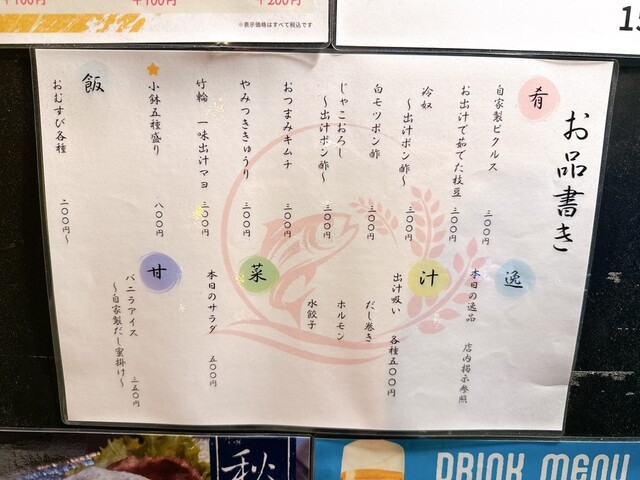 +100円
+100円
+200円
※表示価格はすべて税込です
15
お品書き
肴
自家製ピクルス 三〇〇円
お出汁で茹でた枝豆 三〇〇円
冷奴
～出汁ポン酢～ 三〇〇円
白モツポン酢 三〇〇円
じゃこおろし
～出汁ポン酢～ 三〇〇円
おつまみキムチ 三〇〇円
やみつききゅうり 三〇〇円
竹輪 一味出汁マヨ 三〇〇円
小鉢五種盛り 八〇〇円
飯
おむすび各種 二〇〇円～
逸
本日の逸品 店内掲示参照
汁
出汁吸い 各種五〇〇円
だし巻き
ホルモン
水餃子
菜
本日のサラダ 五〇〇円
甘
バニラアイス
～自家製だし蜜掛け～ 三五〇円
秋
DRINK MENU